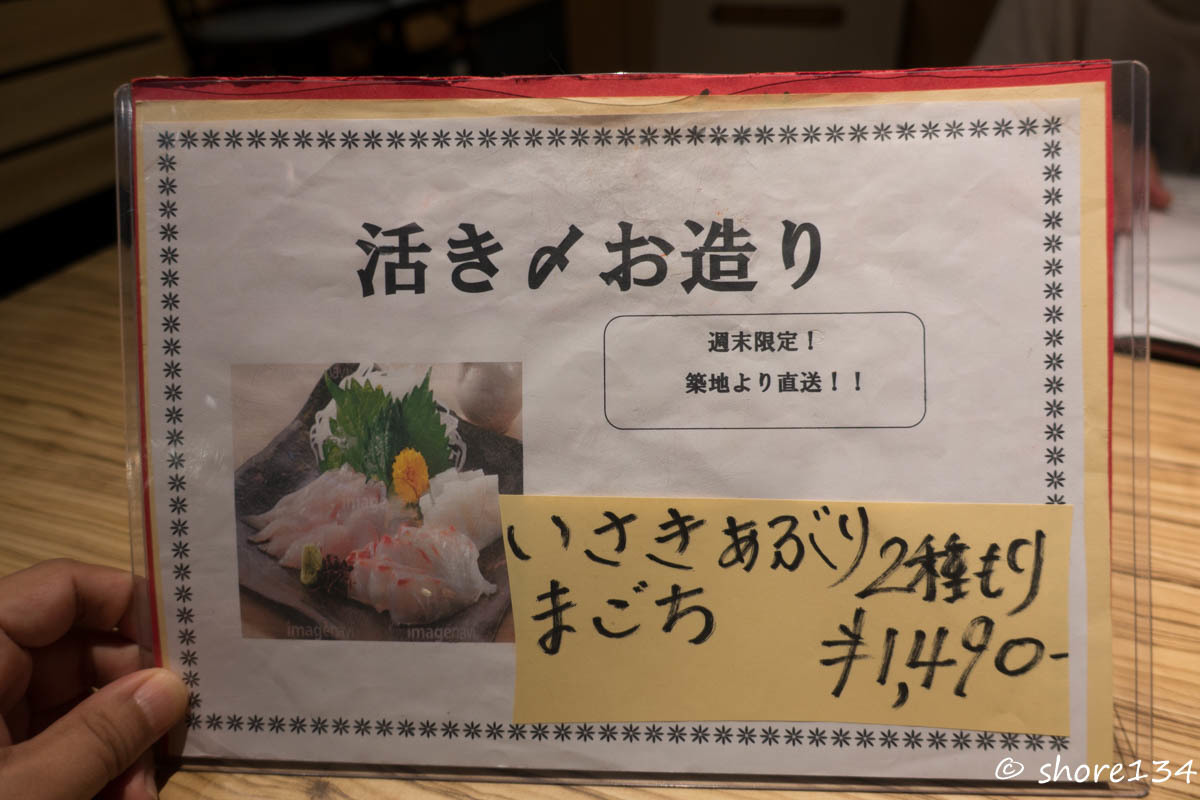 活き〆お造り
週末限定！
築地より直送！！
いさきあぶり 2種もり
まごち ¥1,490-
imagenavi imagenavi
© shore134